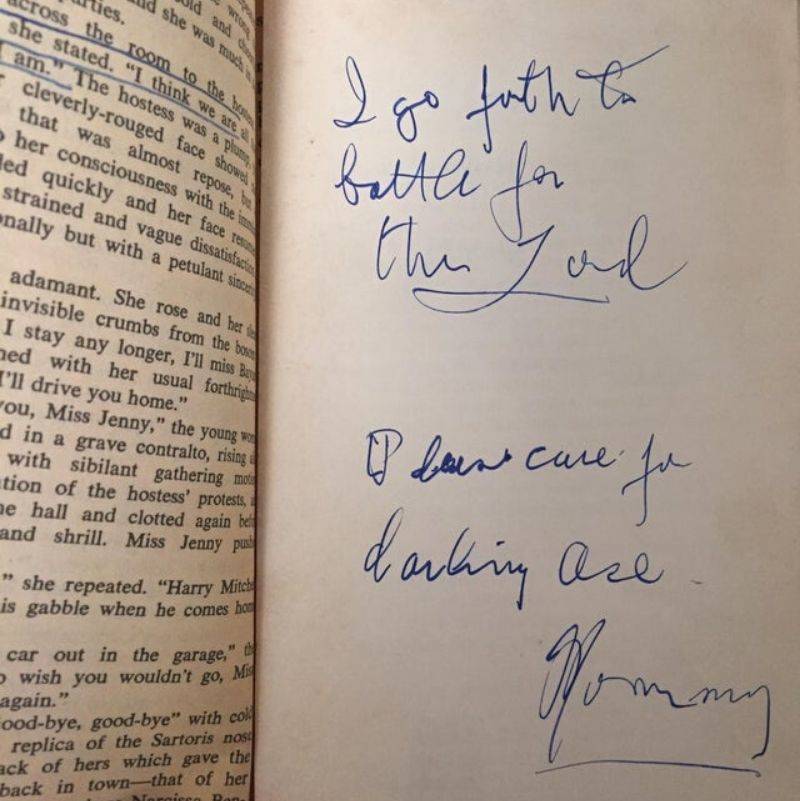 arties.
and she was much
across the room to the
she stated. "I think we are all
I am." The hostess was a plump,
cleverly-rouged face showed
that was almost repose, but
her consciousness with the
led quickly and her face
strained and vague
onally but with a petulant
adamant. She rose and her
invisible crumbs from the
I stay any longer, I'll miss
ned with her usual
I'll drive you home."
you, Miss Jenny," the young
d in a grave contralto, rising
with sibilant gathering
tion of the hostess' protests,
he hall and clotted again
and shrill. Miss Jenny
" she repeated. "Harry
is gabble when he comes
car out in the garage,"
o wish you wouldn't go,
again."
ood-bye, good-bye" with cold
replica of the Sartoris nose
ack of hers which gave the
back in town—that of her
Narcissa
I go forth to
battle for
the Lord
Please care for
darling Ase
Mommy